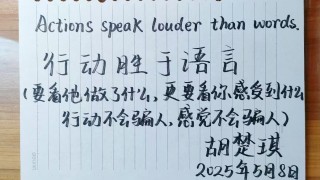 Actions speak louder than words.
行动胜于语言
(要看他做了什么,更要看你感受到什么
行动不会骗人,感觉不会骗人)
胡楚琪
2025年5月8日